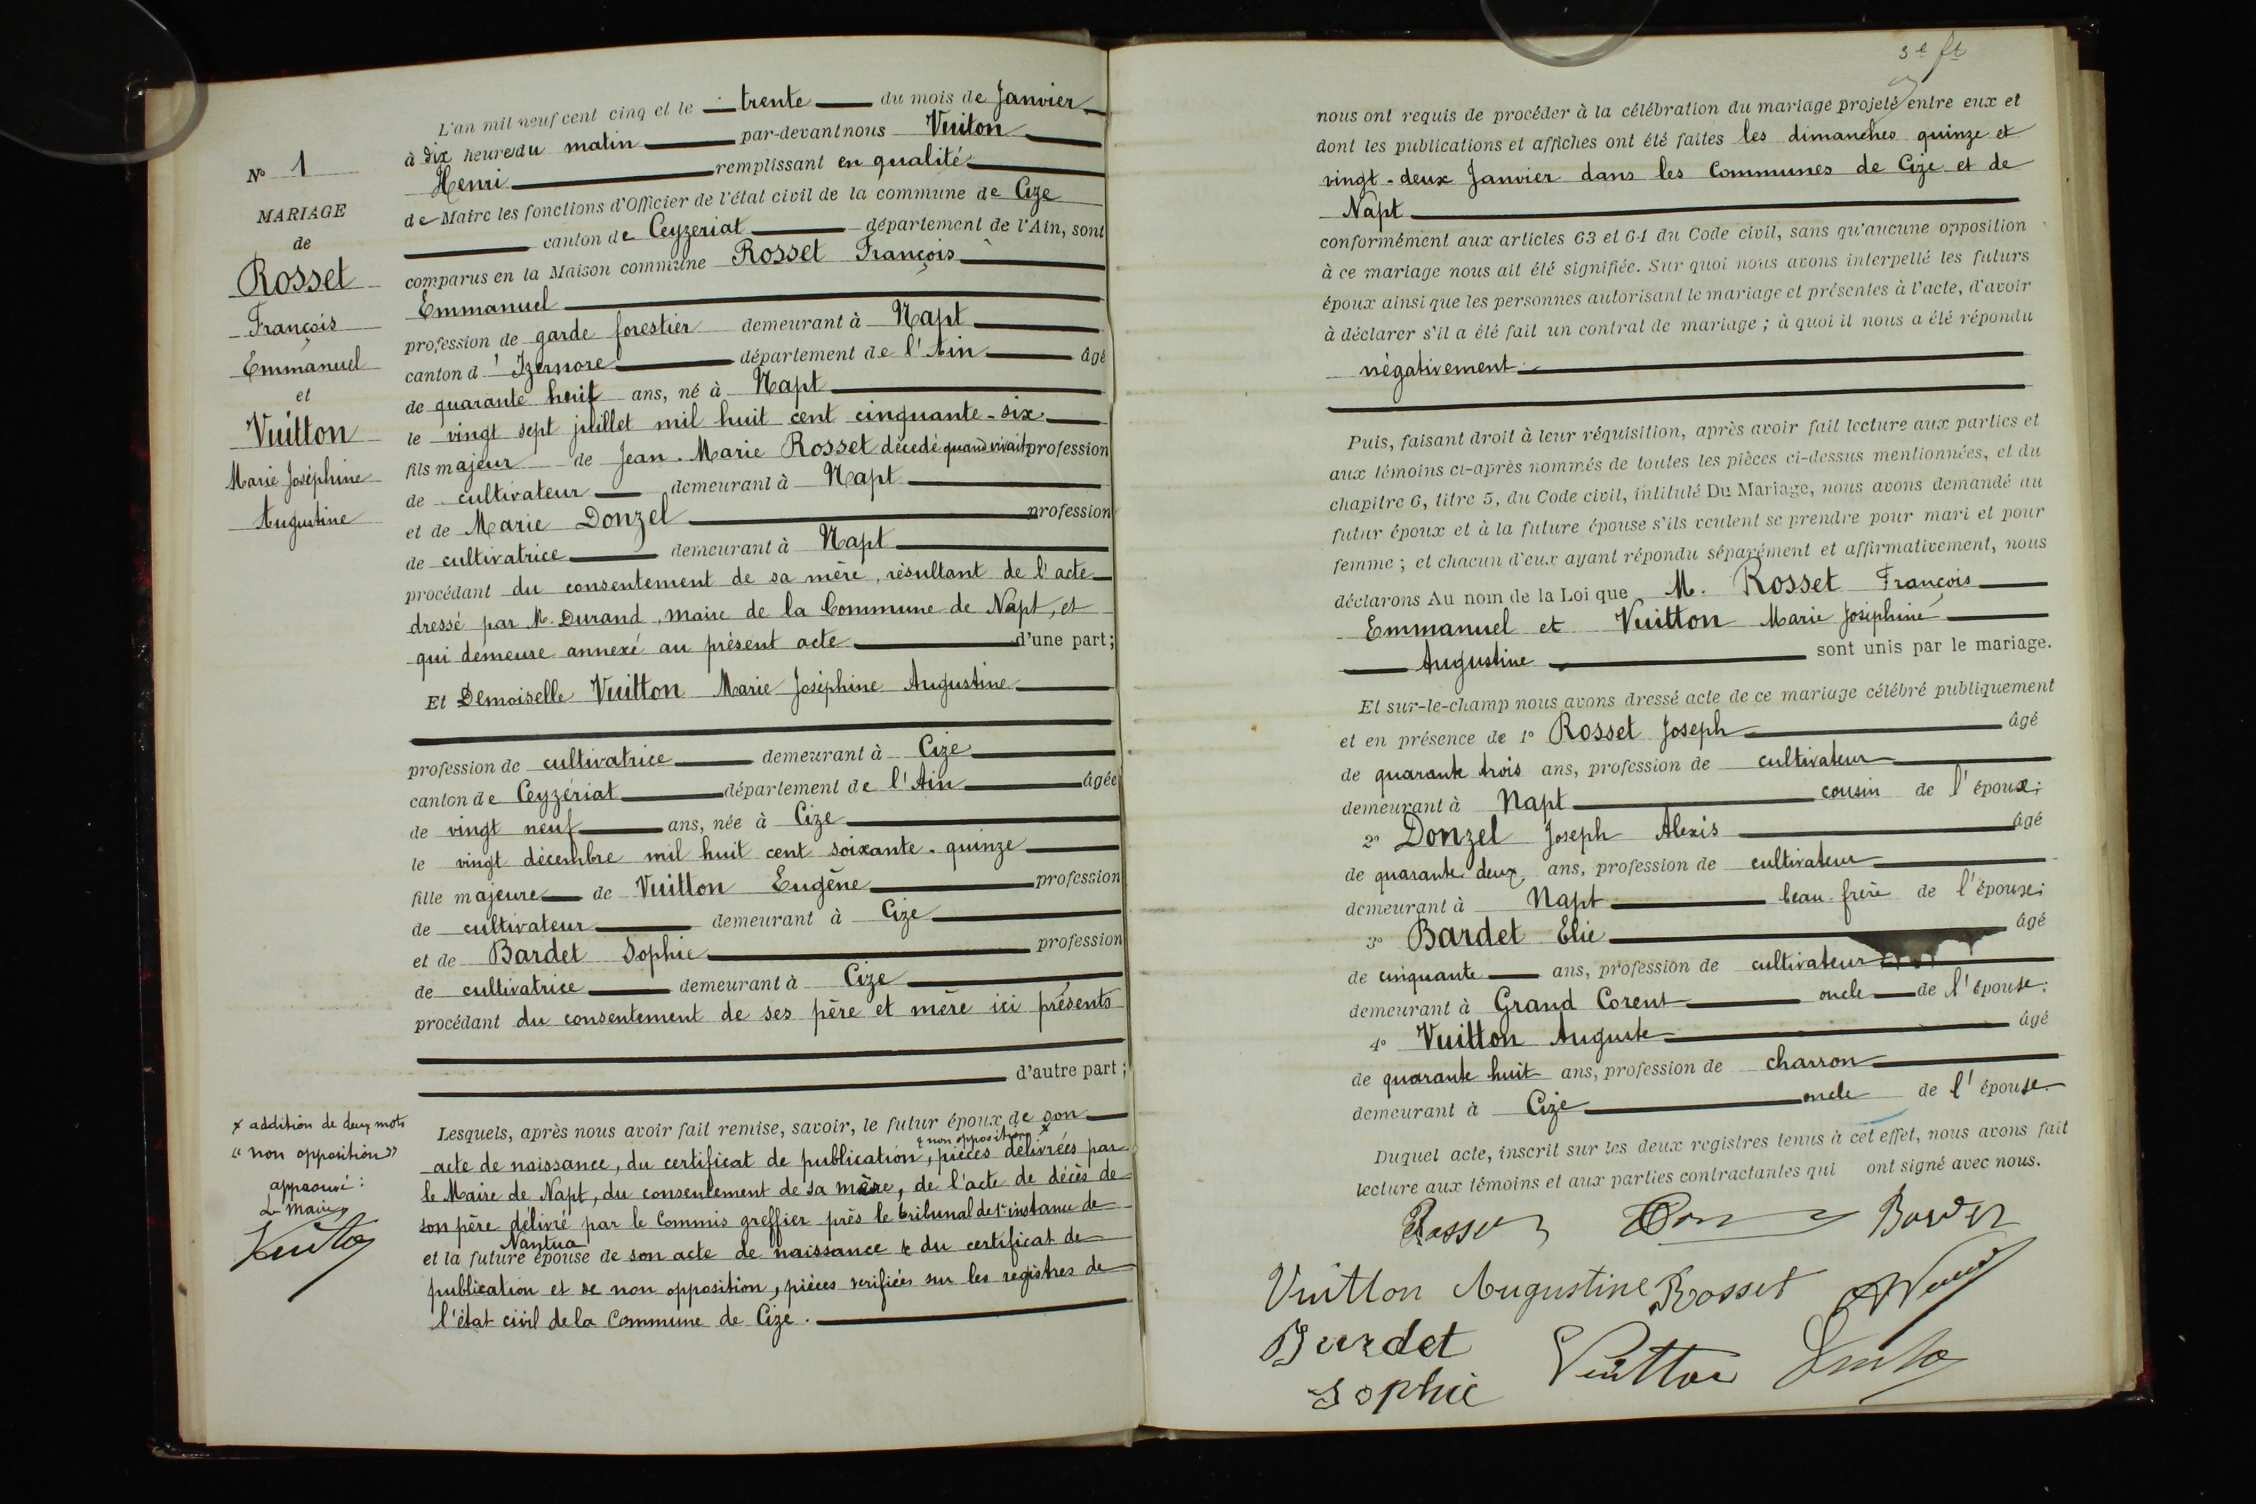 N° 1
MARIAGE
de
Rosset
François
Emmanuel
et
Vuitton
Marie Joséphine
Augustine
L'an mil neuf cent cinq et le trente du mois de Janvier
à dix heures du matin par-devant nous Vuiton
Henri remplissant en qualité
de Maire les fonctions d'Officier de l'état civil de la commune de Cize
canton de Ceyzeriat département de l'Ain, sont
comparus en la Maison commune Rosset François
Emmanuel
profession de garde forestier demeurant à Napt
canton d'Izernore département de l'Ain âgé
de quarante huit ans, né à Napt
le vingt sept juillet mil huit cent cinquante-six
fils majeur de Jean-Marie Rosset décédé quand vivait profession
de cultivateur demeurant à Napt
et de Marie Donzel profession
de cultivatrice demeurant à Napt
procédant du consentement de sa mère, résultant de l'acte
dressé par M. Durand, maire de la Commune de Napt, et
qui demeure annexé au présent acte d'une part;
Et Demoiselle Vuitton Marie Joséphine Augustine
profession de cultivatrice demeurant à Cize
canton de Ceyzériat département de l'Ain âgée
de vingt neuf ans, née à Cize
le vingt décembre mil huit cent soixante-quinze
fille majeure de Vuitton Eugène profession
de cultivateur demeurant à Cize
et de Bardet Sophie profession
de cultivatrice demeurant à Cize
procédant du consentement de ses père et mère ici présents
d'autre part;
Lesquels, après nous avoir fait remise, savoir, le futur époux de son
& non opposition x
acte de naissance, du certificat de publication, pièces délivrées par
le Maire de Napt, du consentement de sa mère, de l'acte de décès de
son père délivré par le Commis greffier près le tribunal de 1re instance de
Nantua
et la future épouse de son acte de naissance & du certificat de
publication et de non opposition, pièces vérifiées sur les registres de
l'état civil de la Commune de Cize.
x addition de deux mots
"non opposition"
approuvé:
Le Maire
3e ft
nous ont requis de procéder à la célébration du mariage projeté entre eux et
dont les publications et affiches ont été faites les dimanches quinze et
vingt-deux Janvier dans les Communes de Cize et de
Napt
conformément aux articles 63 et 64 du Code civil, sans qu'aucune opposition
à ce mariage nous ait été signifiée. Sur quoi nous avons interpellé les futurs
époux ainsi que les personnes autorisant le mariage et présentes à l'acte, d'avoir
à déclarer s'il a été fait un contrat de mariage; à quoi il nous a été répondu
négativement
Puis, faisant droit à leur réquisition, après avoir fait lecture aux parties et
aux témoins ci-après nommés de toutes les pièces ci-dessus mentionnées, et du
chapitre 6, titre 5, du Code civil, intitulé Du Mariage, nous avons demandé au
futur époux et à la future épouse s'ils veulent se prendre pour mari et pour
femme; et chacun d'eux ayant répondu séparément et affirmativement, nous
déclarons Au nom de la Loi que M. Rosset François
Emmanuel et Vuitton Marie Joséphine
Augustine sont unis par le mariage.
Et sur-le-champ nous avons dressé acte de ce mariage célébré publiquement
et en présence de 1° Rosset Joseph âgé
de quarante trois ans, profession de cultivateur
demeurant à Napt cousin de l'époux;
2° Donzel Joseph Alexis âgé
de quarante deux ans, profession de cultivateur
demeurant à Napt beau-frère de l'épouse;
3° Bardet Elie âgé
de cinquante ans, profession de cultivateur
demeurant à Grand Corent oncle de l'épouse;
4° Vuitton Auguste âgé
de quarante huit ans, profession de charron
demeurant à Cize oncle de l'épouse.
Duquel acte, inscrit sur les deux registres tenus à cet effet, nous avons fait
lecture aux témoins et aux parties contractantes qui ont signé avec nous.
Rosset Bardet
Vuitton Augustine Rosset
Burdet
Sophie Vuitton